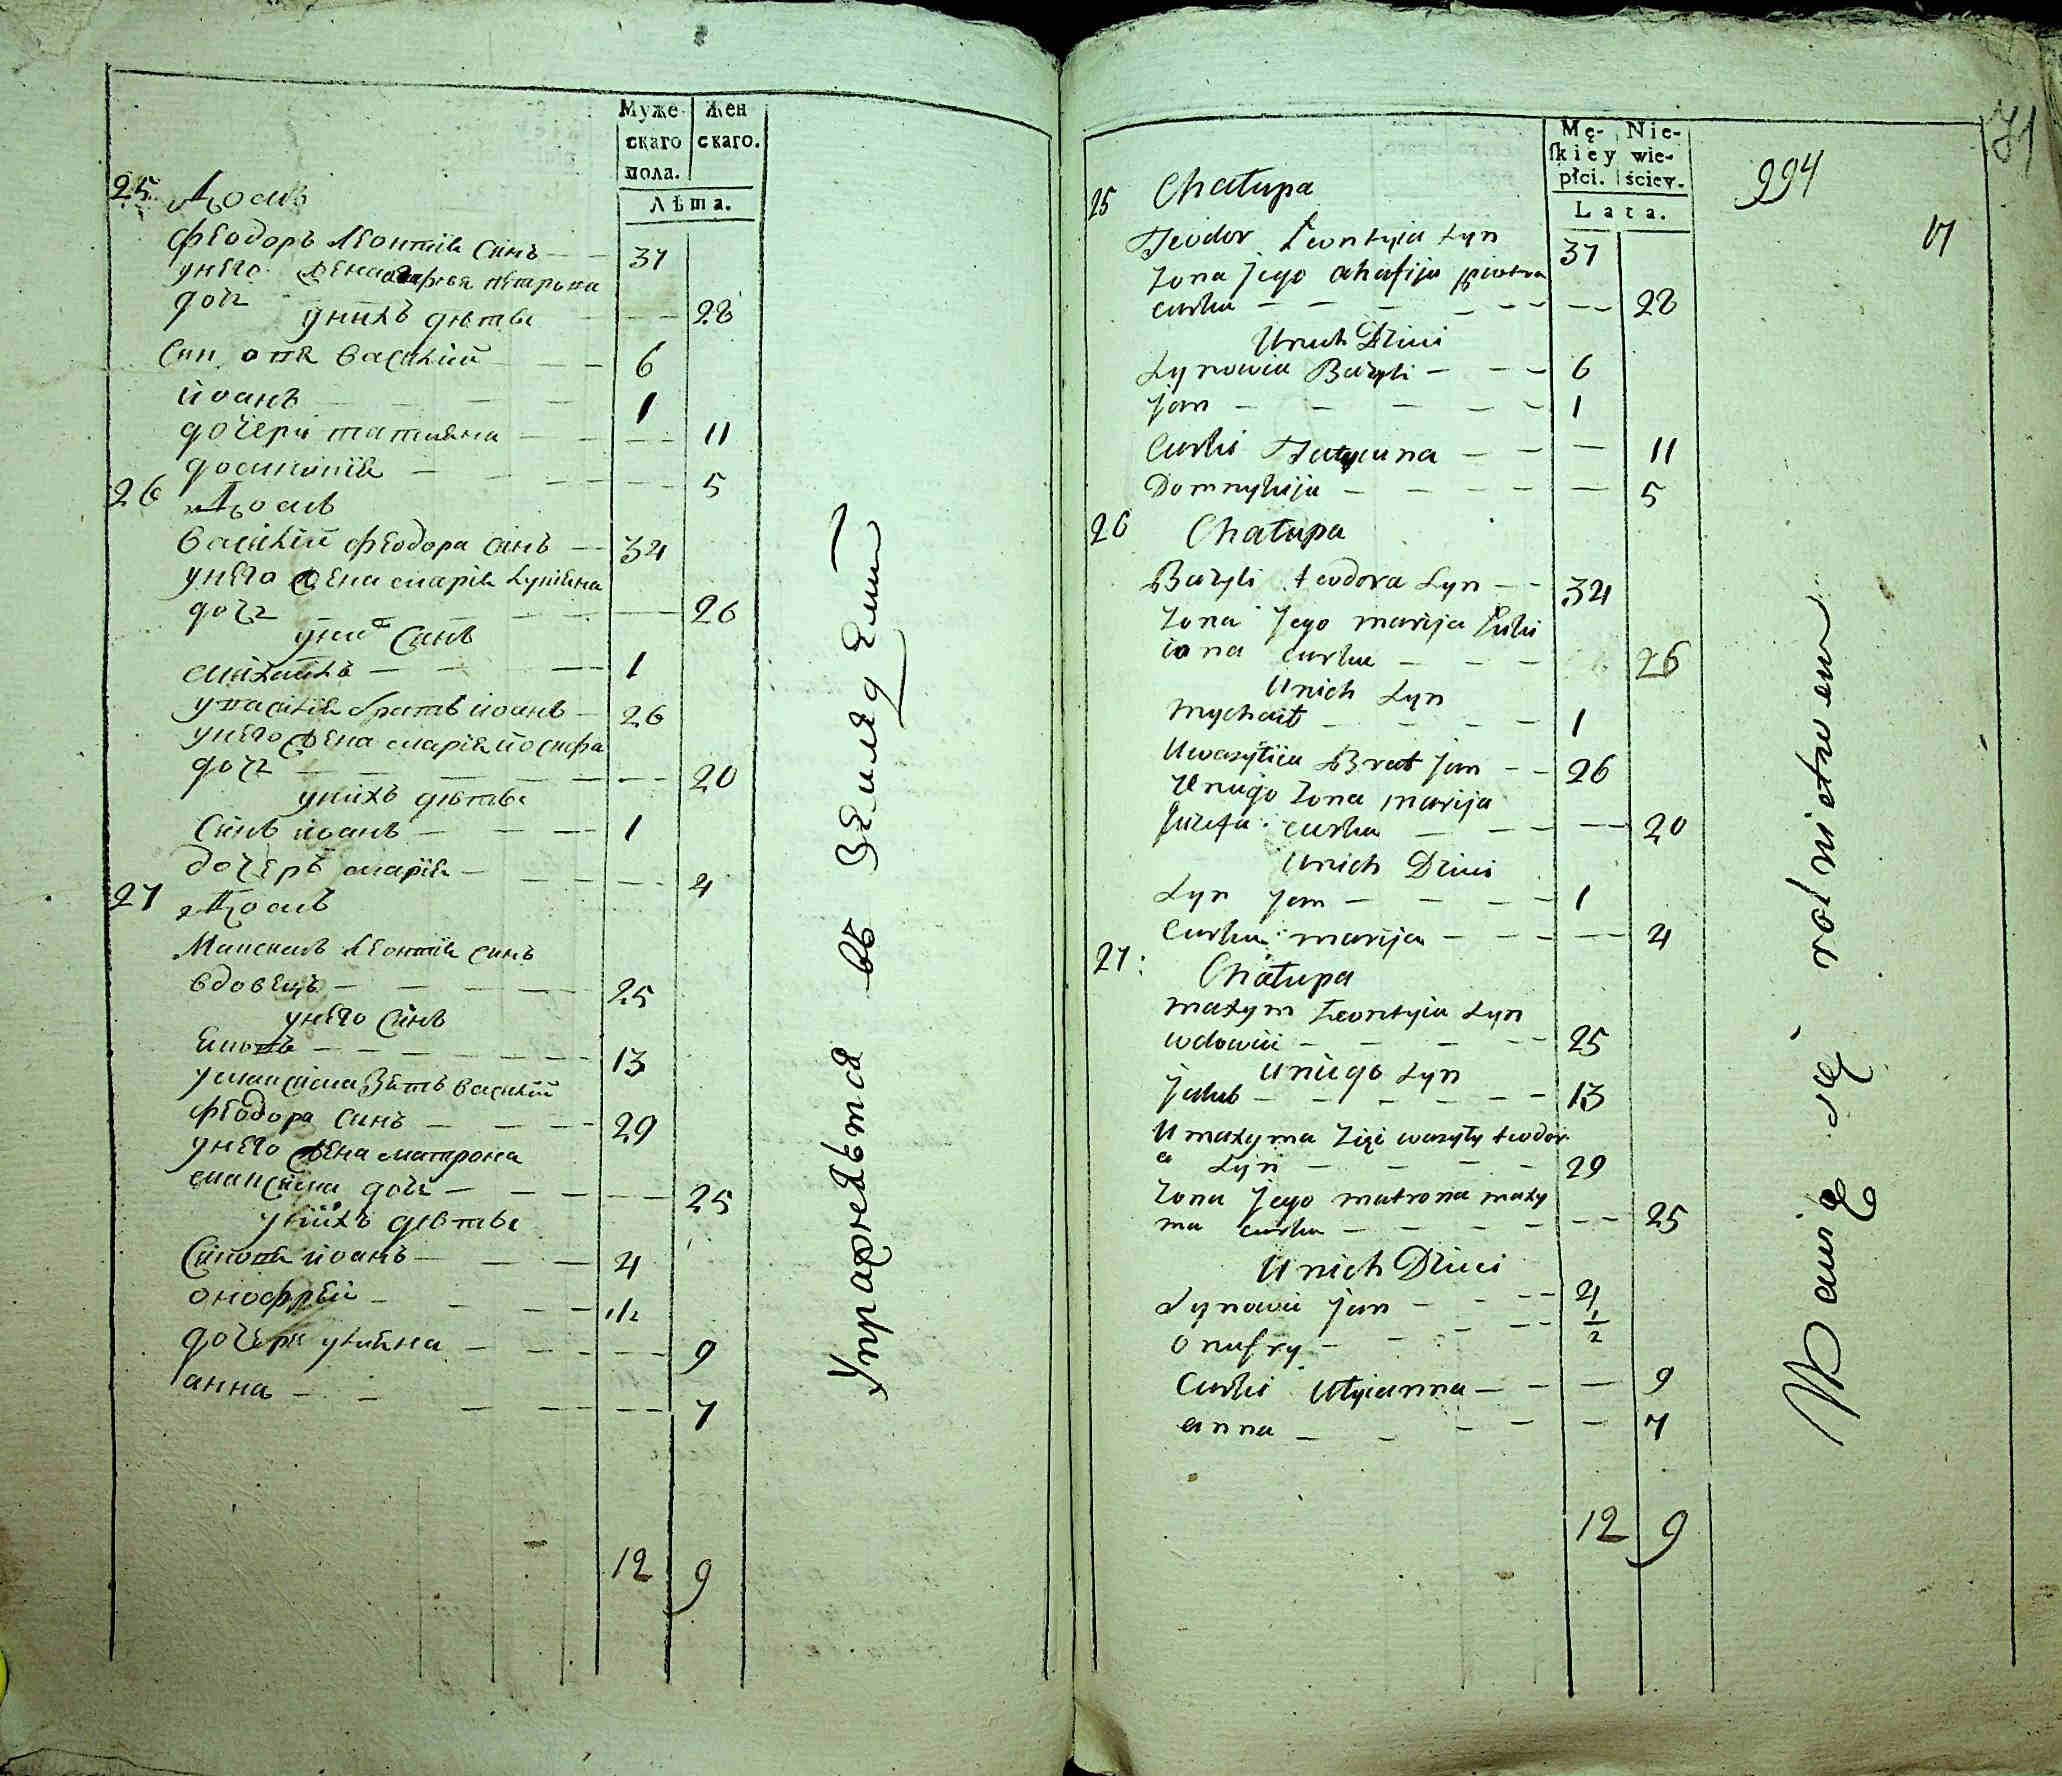 Муже- Жен
скаго скаго.
пола.
Лѣта.
25 Домъ
Феодоръ Леонтія синъ — — 37
унего жена агафія петрова
дочь — — 28
унихъ дѣтѣ
син овя Василій — — 6
йоанъ — — 1
дочери татияна — — 11
домникія — — 5
26 Домъ
Василій Феодора синъ — 34
унего жена марія Лукияна
дочь — — 26
уних синъ
михаилъ — — 1
уВасилія братъ йоанъ — 26
унего жена марія йосифа
дочь — — 20
унихъ дѣтѣ
Синъ йоанъ — — 1
дочеръ марія — — 4
27 Домъ
Максимъ Леонтія синъ
вдовецъ — — 25
унего Синъ
Яковъ — — 13
умаксима Зять василій
Феодора синъ — — 29
унего жена матрона
максима дочь — — 25
унихъ дѣтѣ
Синовя йоанъ — — 4
онофрей — — 1/2
дочери улияна — — 9
анна — — 7
12 9
Упражняѣтся въ Земледелии
Mę- Nie-
skiey wie-
płci. ściey.
Lata.
71
994
17
25 Chałupa
Teodor Leontyia Syn 37
Zona Jego ahafija piotra
curka — — 28
Unich Dzieci
Synowie Bazyli — — 6
Jan — — 1
Curki Tatyanna — — 11
Domnykija — — 5
26 Chałupa
Bazyli teodora Syn — — 34
Zona Jego marija Łuki
iana curka — — 26
Unich Syn
Mychaił — — 1
Uwasylia Brat Jan — — 26
Uniego Zona marija
Juzefa curka — — 20
Unich Dzieci
Syn Jan — — 1
Curka marija — — 4
27: Chałupa
maxym Leontyia Syn
wdowiec — — 25
Uniego Syn
Jakub — — 13
Umaxyma Zięć wasyly teodor
a Syn — — 29
Zona Jego matrona maxy
ma curka — — 25
Unich Dzieci
Synowie Jan — — 4
Onufry — — 1/2
Curki Ulyianna — — 9
anna — — 7
12 9
Bawią się rolnictwem